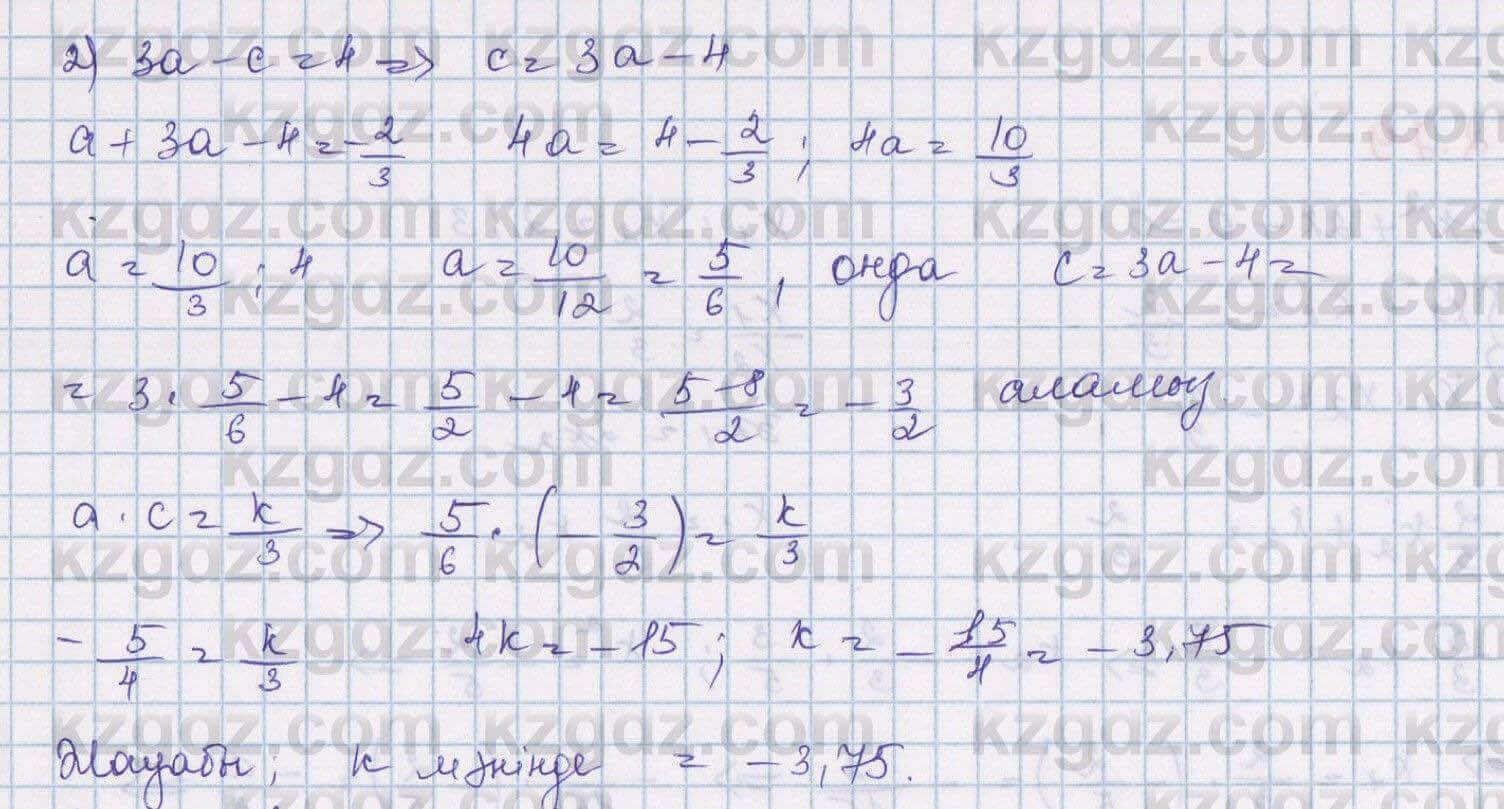 2) 3a - c = 4 => c = 3a - 4
a + 3a - 4 = -2/3 4a = 4 - 2/3; 4a = 10/3
a = 10/3 : 4 a = 10/12 = 5/6, онда c = 3a - 4 =
= 3 · 5/6 - 4 = 5/2 - 4 = (5-8)/2 = -3/2 аламыз.
a · c = k/3 => 5/6 · (-3/2) = k/3
-5/4 = k/3 4k = -15; k = -15/4 = -3,75
Жауабы; k мәнінде = -3,75.
kzgdz.com